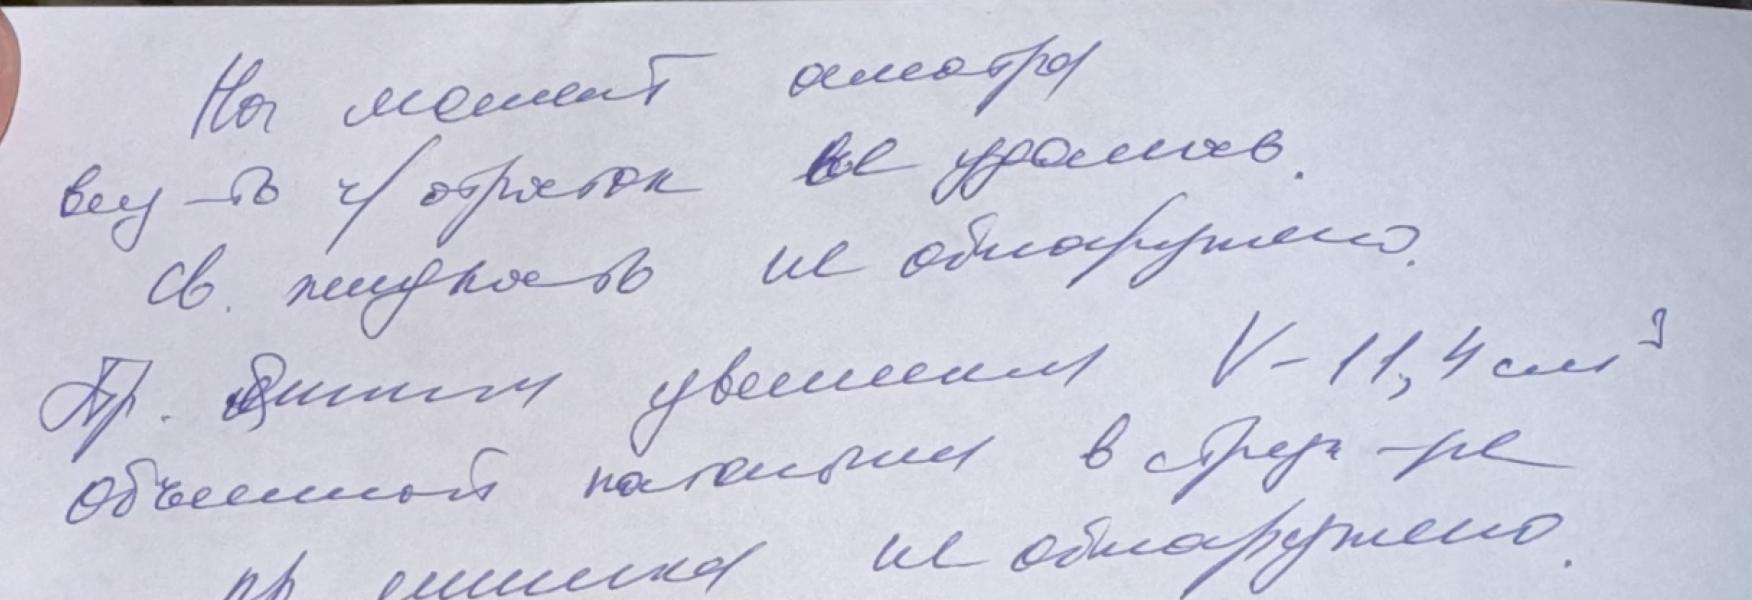 На момент осмотра
вну-ть ч/отросток не удалось.
Св. жидкость не обнаружено.
Пр. яичник увеличен V-11,4 см³
Объемной патологии в структ-ре
пр яичника не обнаружено.